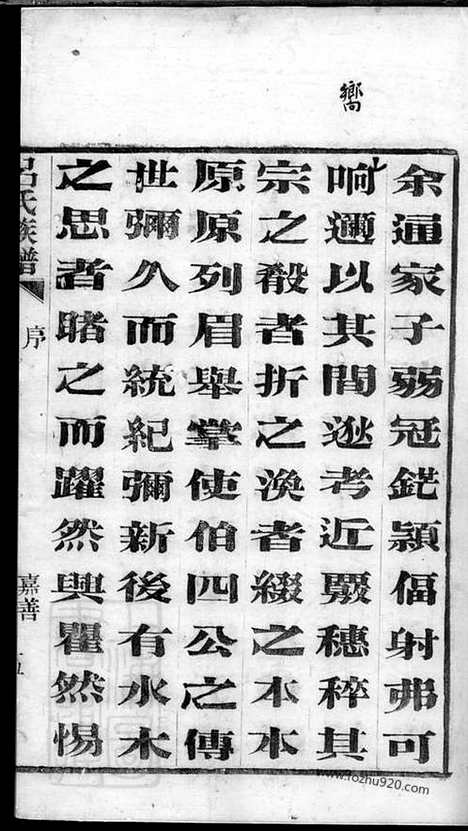 嚮
余通家子弱冠鋩頴偪射弗可
响邇以其間逖考近覈穗稡其
宗之殽者折之渙者綴之木本
原原列眉舉掌使伯四公之傳
世彌久而統紀彌新後有水木
之思者睹之而躍然興瞿然惕
呂氏族譜
序
嘉善
五
www.fozhu920.com